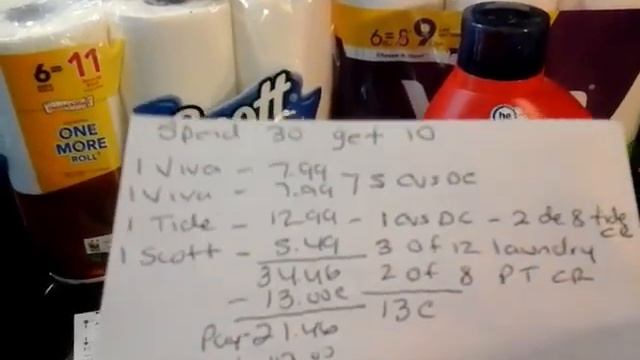 6=11
ONE
MORE
ROLL
Scott
6= 9
he
Spend 30 get 10
1 Viva - 7.99
1 Viva - 7.99 7 5 CVS DC
1 Tide - 12.99 - 1 CVS DC - 2 de 8 tide CR
1 Scott - 5.49 3 of 12 laundry
34.46 2 of 8 PT CR
- 13.00c 13c
Pay - 21.46